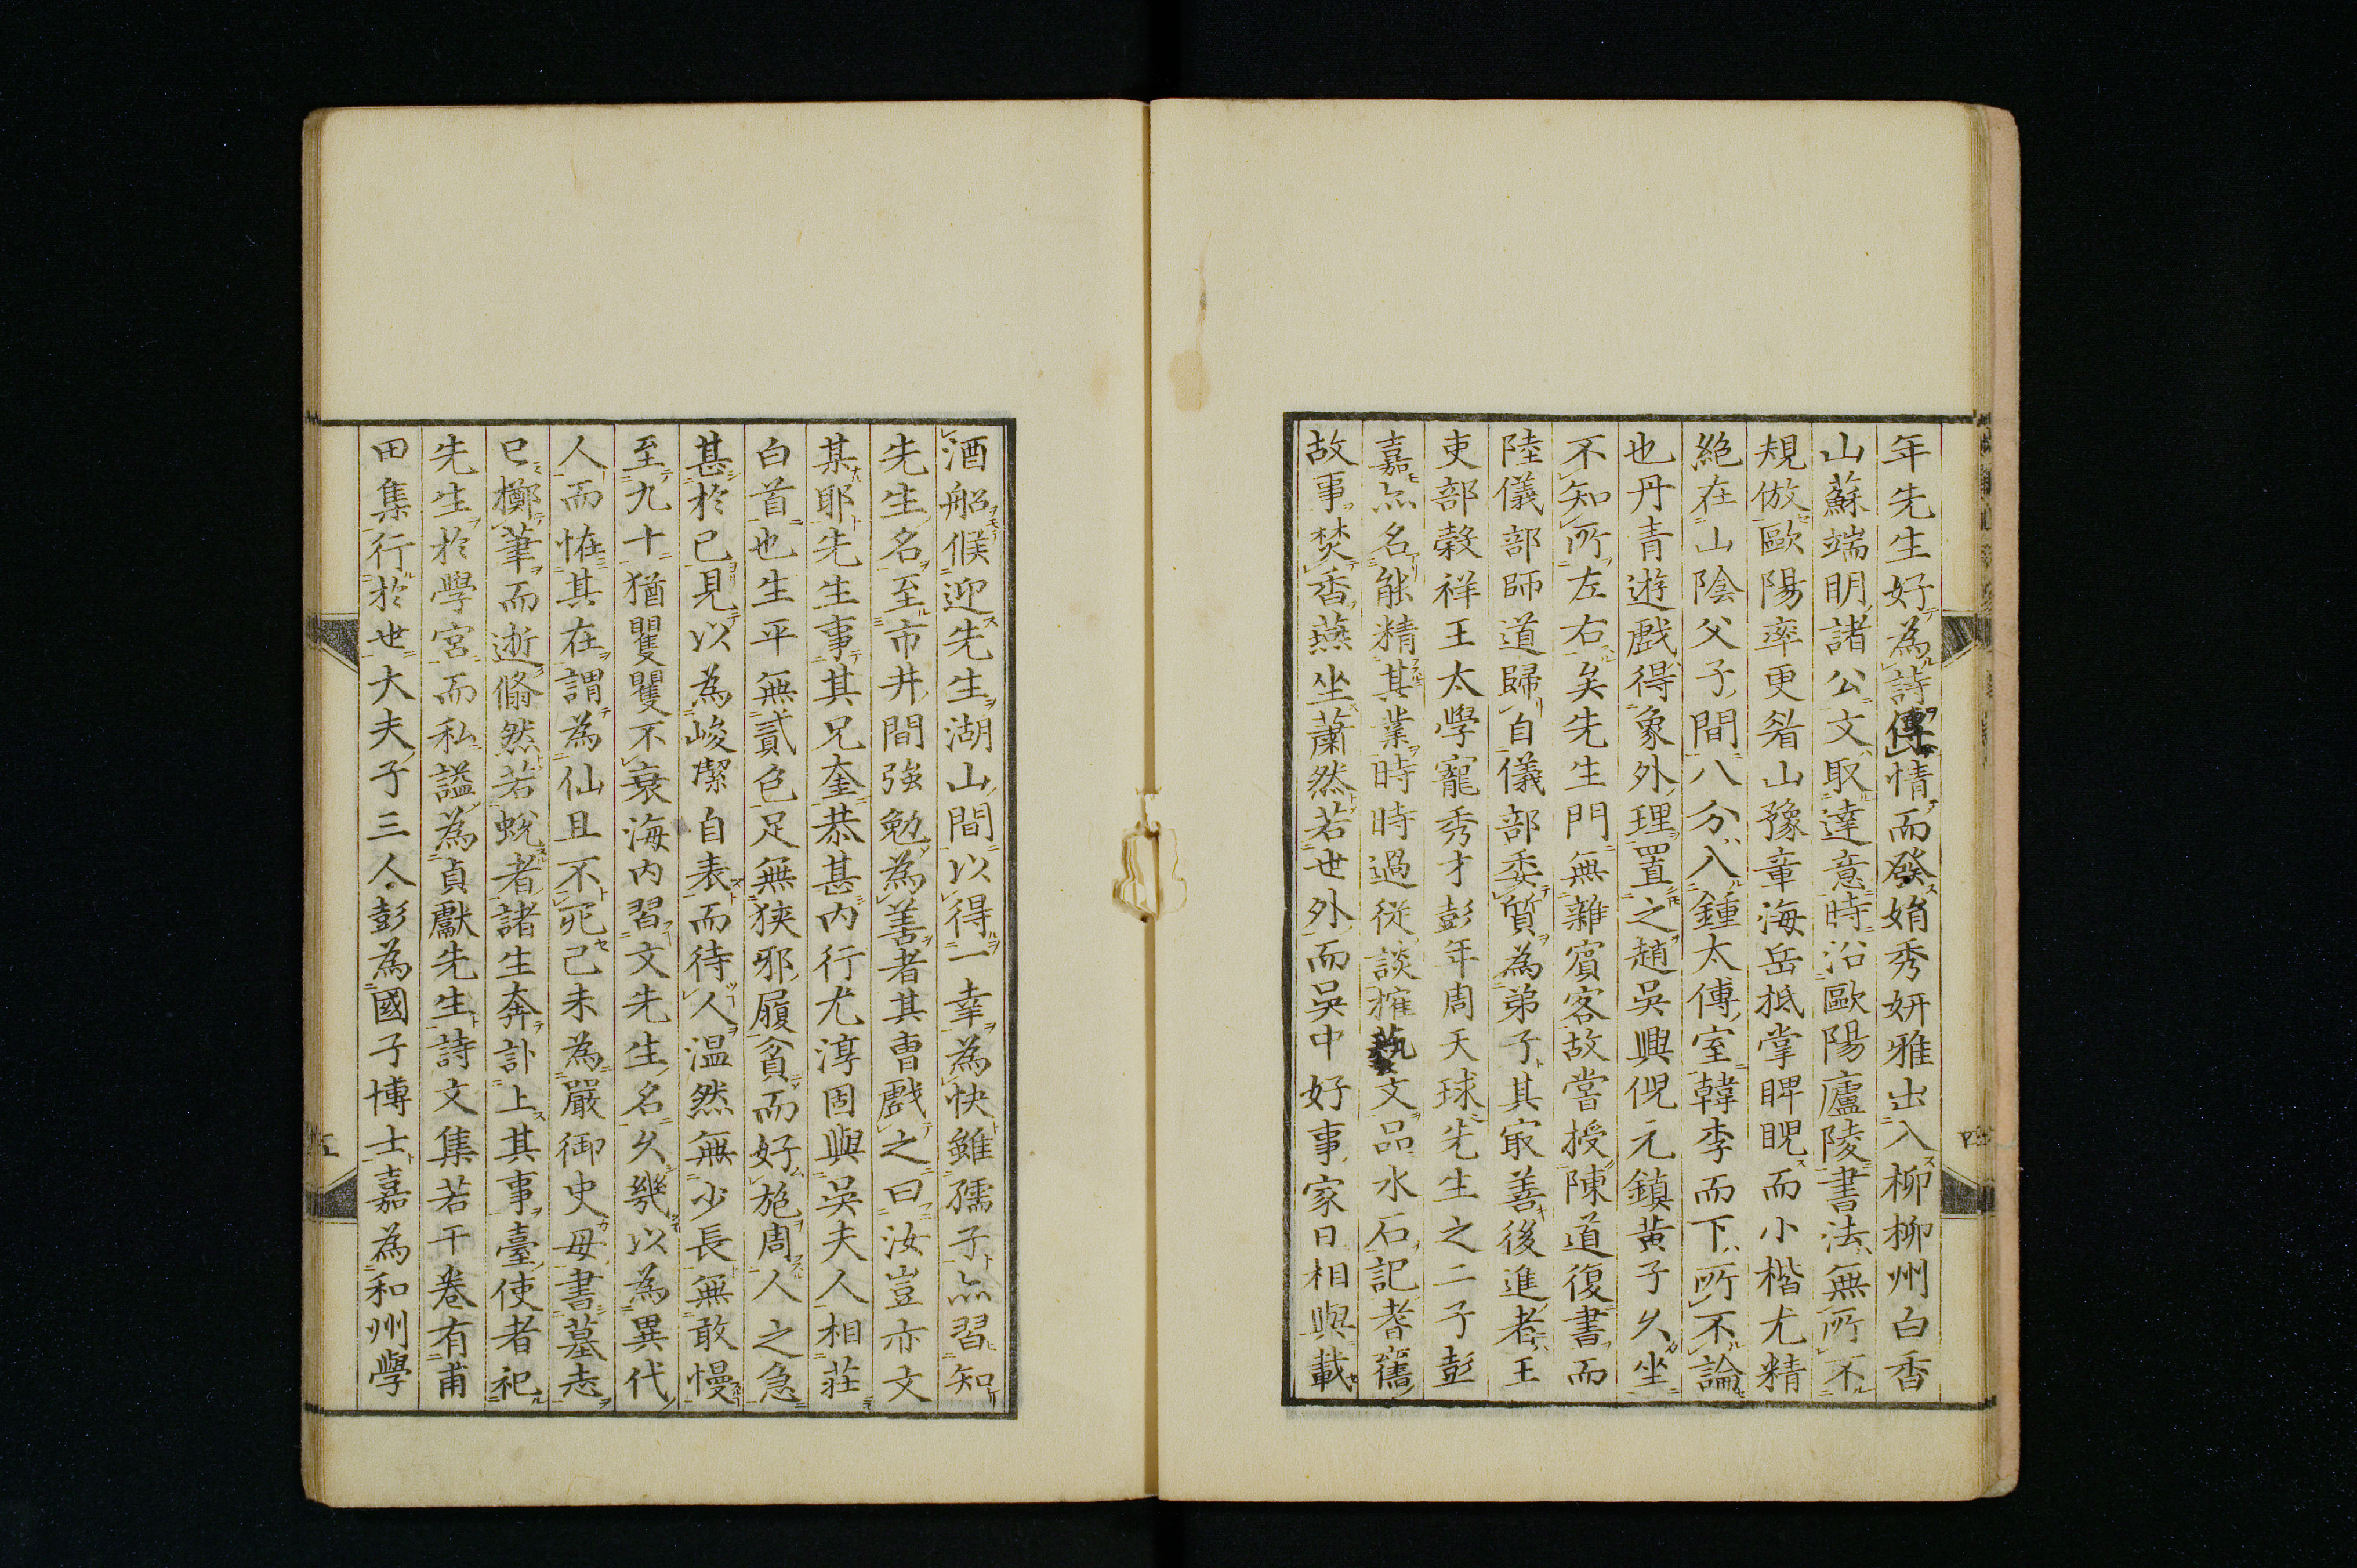 年先生好為詩傳情而發娟秀妍雅出入柳柳州白香
山蘇端明諸公文取達意時沿歐陽廬陵書法無所不
規倣歐陽率更眉山豫章海岳抵掌睥睨而小楷尤精
絶在山陰父子間八分入鍾太傅室韓李而下所不論
也丹青遊戲得象外理置之趙吳興倪元鎮黃子久坐
不知所左右矣先生門無雜賓客故嘗授陳道復書而
陸儀部師道歸自儀部委質為弟子其㝡善後進者王
吏部穀祥王太學寵秀才彭年周天球先生之二子彭
嘉亦名能精其業時時過從談搉藝文品水石記耆舊
故事焚香燕坐蕭然若世外而吳中好事家日相與載
酒船候迎先生湖山間以得一幸為快雖孺子亦習知
先生名至市井間強勉為善者其曹戲之曰汝豈亦文
某耶先生事其兄奎恭甚内行尤淳固與吳夫人相莊
白首也生平無貳色足無狹邪履貧而好施周人之急
甚於已見以為峻潔自表而待人温然無少長無敢慢
至九十猶矍矍不衰海内習文先生名久幾以為異代
人而恠其在謂為仙且不死己未為嚴御史母書墓志
已擲筆而逝翛然若蛻者諸生奔訃上其事臺使者祀
先生於學宮而私謚為貞獻先生詩文集若干卷有甫
田集行於世大夫子三人彭為國子博士嘉為和州學
四
五